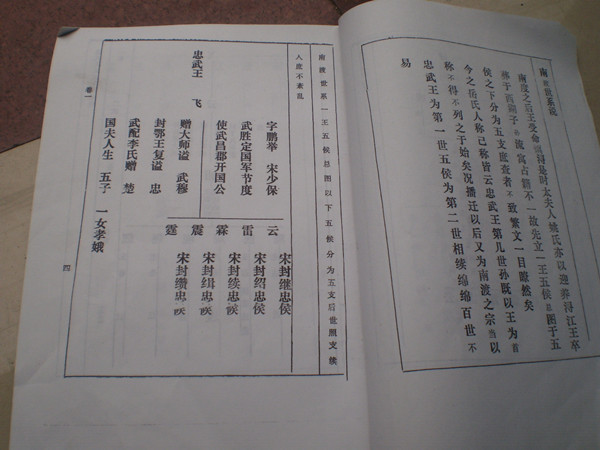 南渡世系说
南度之后王受命浔是时太夫人姚氏亦以迎养浔江王卒
葬于西端子 流寓占籍不一故先立一王五侯 图于五
侯之下分为五支庶查者不致繁文一目暸然矣
今之岳氏人称已称皆云忠武王第几世孙既以王为首
称不得不列之于始矣况播迁以后又为南渡之宗当以
忠武王为第一世五侯为第二世相续绵绵百世不
易
南渡世系一王五侯总图以下五侯分为五支后世照支续
入庶不紊乱
忠武王 飞
字鹏举 宋少保
武胜定国军节度
使武昌郡开国公
赠大师谥 武穆
封鄂王复谥 忠
武配李氏赠 楚
国夫人生 五子 一女孝娥
云 宋封继忠侯
雷 宋封绍忠侯
霖 宋封续忠侯
震 宋封缉忠侯
霆 宋封缵忠侯
卷一
四